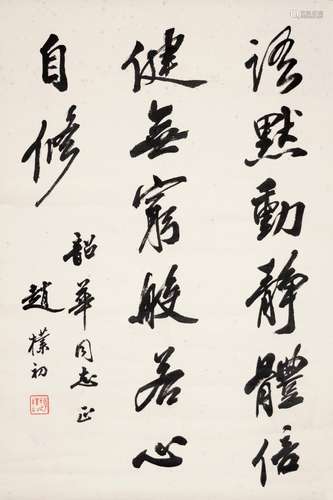 語默動靜體倍
健無窮般若心
自修
韶華同志正
趙樸初